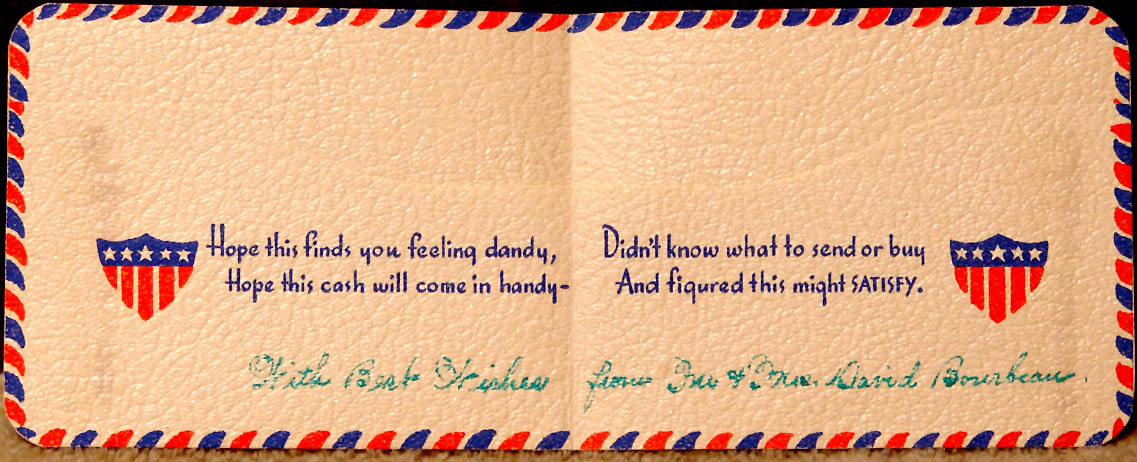 Hope this finds you feeling dandy,
Hope this cash will come in handy-
Didn't know what to send or buy
And figured this might SATISFY.
With Best Wishes from Mr & Mrs. David Bourbeau.